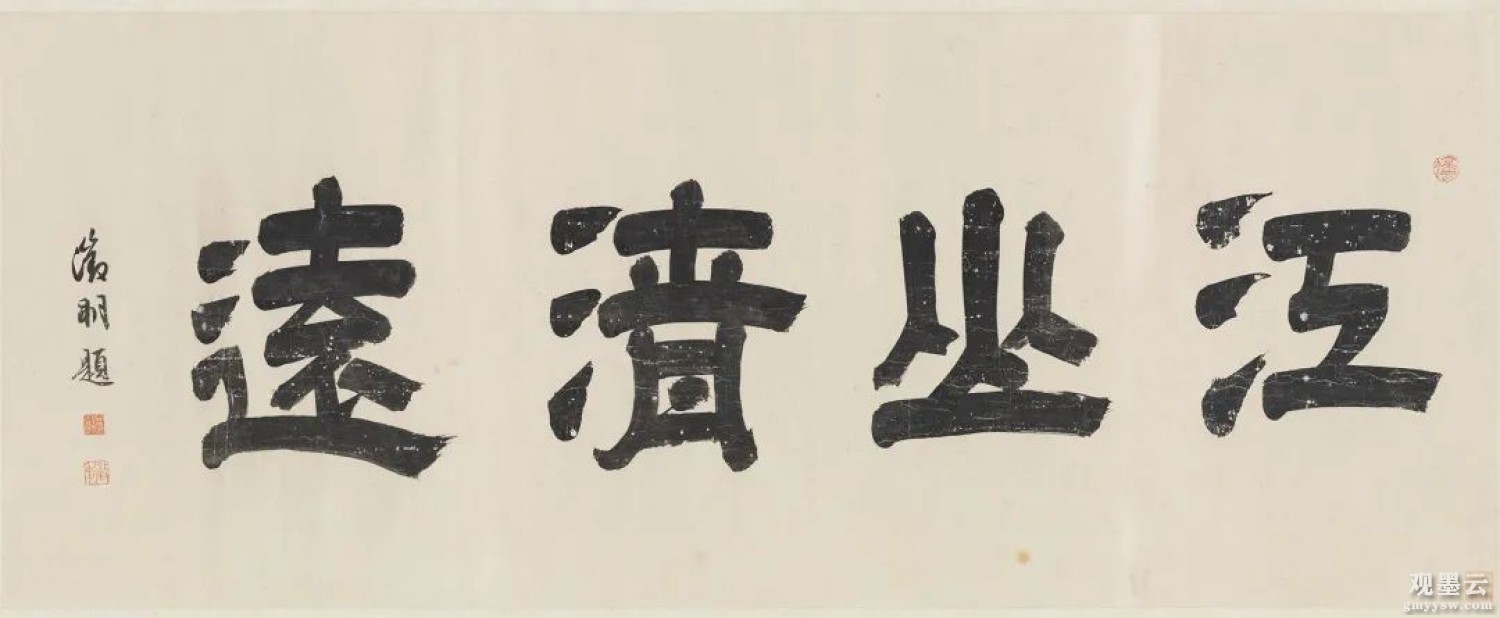 江山清遠
徵明題
观墨云
gmyysw.com